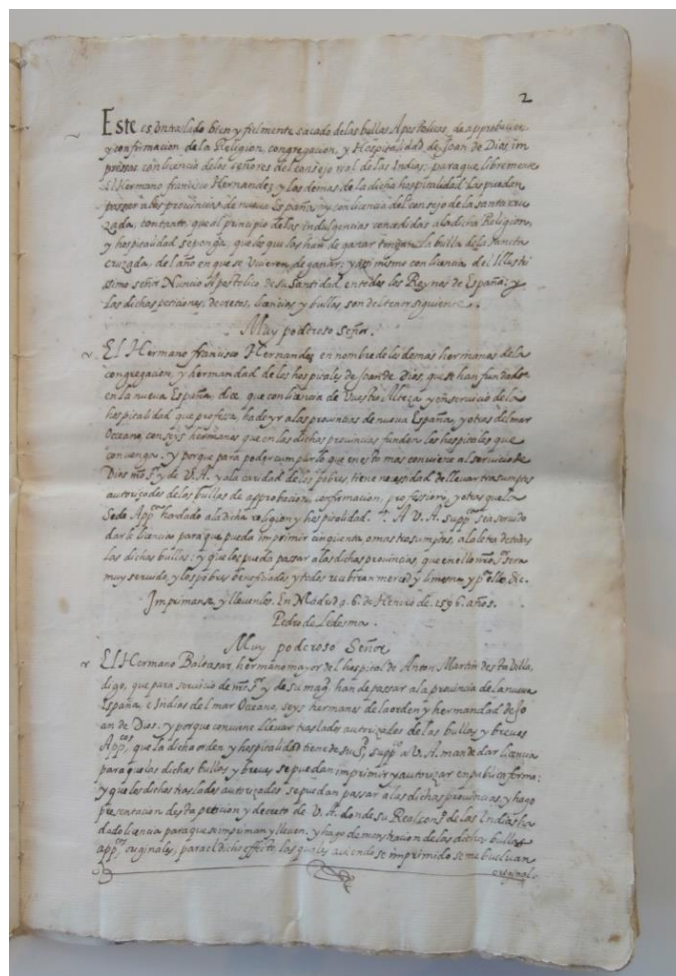 2
Este es Un traslado bien y fielmente sacado de las bullas Apostolicas, de approbacion
y confirmacion de la Religion, congregacion, y Hospitalidad, de Joan de Dios, im
pressas con licencia de los señores del consejo real de las Indias; para que libremente
El Hermano francisco Hernandez, y los demas de la dicha hospitalidad las puedan
passar a las provincias de nueva España, y con licencia del consejo de la santa cru
zada, con tanto, que al principio de las Indulgencias concedidas a la dicha Religion,
y hospitalidad se ponga, que los que las han de ganar tengan la bulla de la sancta
cruzada, del año en que se huvieren de ganar; y assi mismo con licencia del Illustri
ssimo señor Nuncio Apostolico de su Santidad, en todos los Reynos de España; y
las dichas peticiones, decretos, licencias y bullas, son del tenor siguiente.
Muy poderoso Señor.
El Hermano francisco Hernandez en nombre de los demas hermanos de la
congregacion, y hermandad de los hospitales de Joan de Dios, que se han fundado
en la nueva España, dice, que con licencia de Vuestra Alteza, y en servicio de la
hospitalidad que professa, ha de yr a las provincias de nueva España, y otras del mar
Oceano, con seys hermanos que en las dichas provincias funden los hospitales que
convenga. y porque para poder cumplir lo que en esto mas conviene al servicio de
Dios nro. Sr. y de V. A. y a la caridad de los pobres, tiene necesidad de llevar trasumptos
autorizados de las bullas de approbacion, confirmacion, profession, y otras que la
Sede Appca. ha dado a la dicha religion y hospitalidad. A V. A. suppca. sea servido
darle licencia para que pueda imprimir cinquenta o mas trasumptos, a la letra de todas
las dichas bullas: y que los pueda passar a las dichas provincias, que en ello nro. Sr. sera
muy servido, y los pobres beneficiados y todos recibiran merced y limosna, y pa. ello. &c.
Imprimanse y llevenlos. En Madrid a. 6. de Henero de. 1596. años.
Pedro de Ledesma.
Muy poderoso Señor
El Hermano Baltasar, hermano mayor del hospital de Anton Martin desta Villa,
digo, que para servicio de nro. Sr. y de su magd. han de passar a la provincia de la nueva
España, e Indias del mar Oceano, seys hermanos de la orden y hermandad de Jo
an de Dios. y porque conviene llevar traslado autorizados de las bullas y breves
Appcos. que la dicha orden y hospitalidad tiene de su Sd. suppco. a V. A. mande dar licencia
para que las dichas bullas y breves se puedan imprimir y autorizar en publica forma:
y que los dichos traslados autorizados se puedan passar a las dichas provincias; y hago
presentacion desta peticion y decreto de V. A. donde su Real cono. de las Indias ha
dado licencia para que se impriman y lleven. y hago demonstracion de las dichas bullas
appcas. originales, para el dicho effecto, las quales aviendose imprimido se me buelvan
originals.